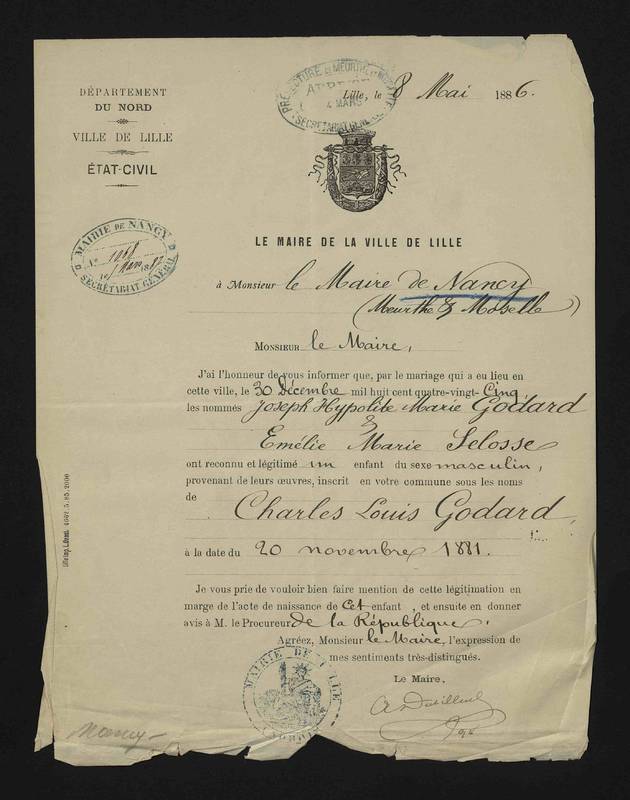 DÉPARTEMENT
DU NORD
VILLE DE LILLE
ÉTAT-CIVIL
PRÉFECTURE
4 MARS
SECRÉTARIAT GÉNÉRAL
Lille, le 8 Mai 1886.
MAIRIE DE NANCY
SECRÉTARIAT GÉNÉRAL
LE MAIRE DE LA VILLE DE LILLE
à Monsieur le Maire de Nancy
(Meurthe & Moselle)
MONSIEUR le Maire,
J'ai l'honneur de vous informer que, par le mariage qui a eu lieu en
cette ville, le 30 Décembre mil huit cent quatre-vingt-Cinq,
les nommés Joseph Hypolite Marie Godard
&
Emélie Marie Selosse
ont reconnu et légitimé un enfant du sexe masculin,
provenant de leurs œuvres, inscrit en votre commune sous les noms
de Charles Louis Godard,
à la date du 20 novembre 1881.
Je vous prie de vouloir bien faire mention de cette légitimation en
marge de l'acte de naissance de Cet enfant, et ensuite en donner
avis à M. le Procureur de la République.
Agréez, Monsieur le Maire, l'expression de
mes sentiments très-distingués.
Le Maire,
MAIRIE DE LILLE
Nancy-